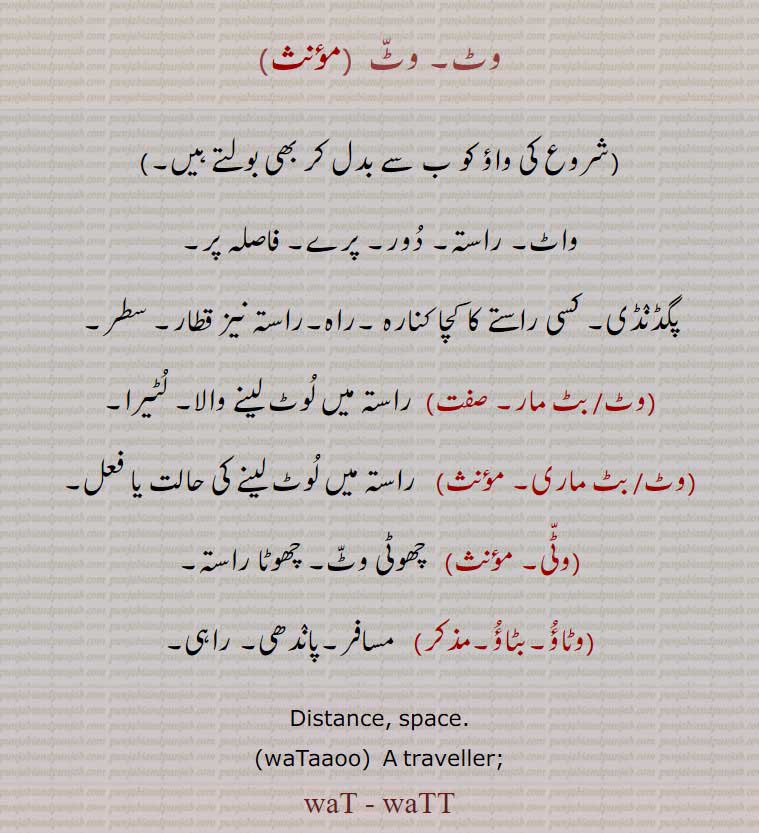 وٹ۔ وٹّ (مؤنث)
(شروع کی واؤ کو ب سے بدل کر بھی بولتے ہیں۔)
واٹ۔ راستہ۔ دُور۔ پرے۔ فاصلہ پر۔
پگڈنڈی۔ کسی راستے کا کچا کنارہ ۔راہ۔راستہ نیز قطار۔ سطر۔
(وٹ/ بٹ مار۔ صفت) راستہ میں لُوٹ لینے والا۔ لُٹیرا۔
(وٹ/ بٹ ماری۔ مؤنث) راستہ میں لُوٹ لینے کی حالت یا فعل۔
(وٹّی۔ مؤنث) چھوٹی وٹّ۔ چھوٹا راستہ۔
(وٹاؤُ۔ بٹاؤُ۔مذکر) مسافر۔پاندھی۔ راہی۔
Distance, space.
(waTaaoo) A traveller;
waT - waTT